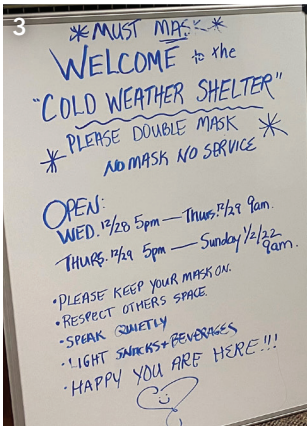 3
* MUST MASK *
WELCOME to the
"COLD WEATHER SHELTER"
* PLEASE DOUBLE MASK *
NO MASK NO SERVICE
OPEN:
WED. 12/28 5pm — Thurs. 12/29 9am.
THURS. 12/29 5pm — Sunday 1/2/22
9am.
• PLEASE KEEP YOUR MASK ON.
• RESPECT OTHERS SPACE.
• SPEAK QUIETLY
• LIGHT SNACKS + BEVERAGES
• HAPPY YOU ARE HERE!!!